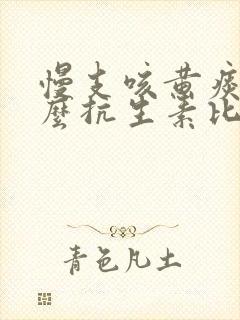 慢支咳黄痰
麽抗生素比
青色凡土